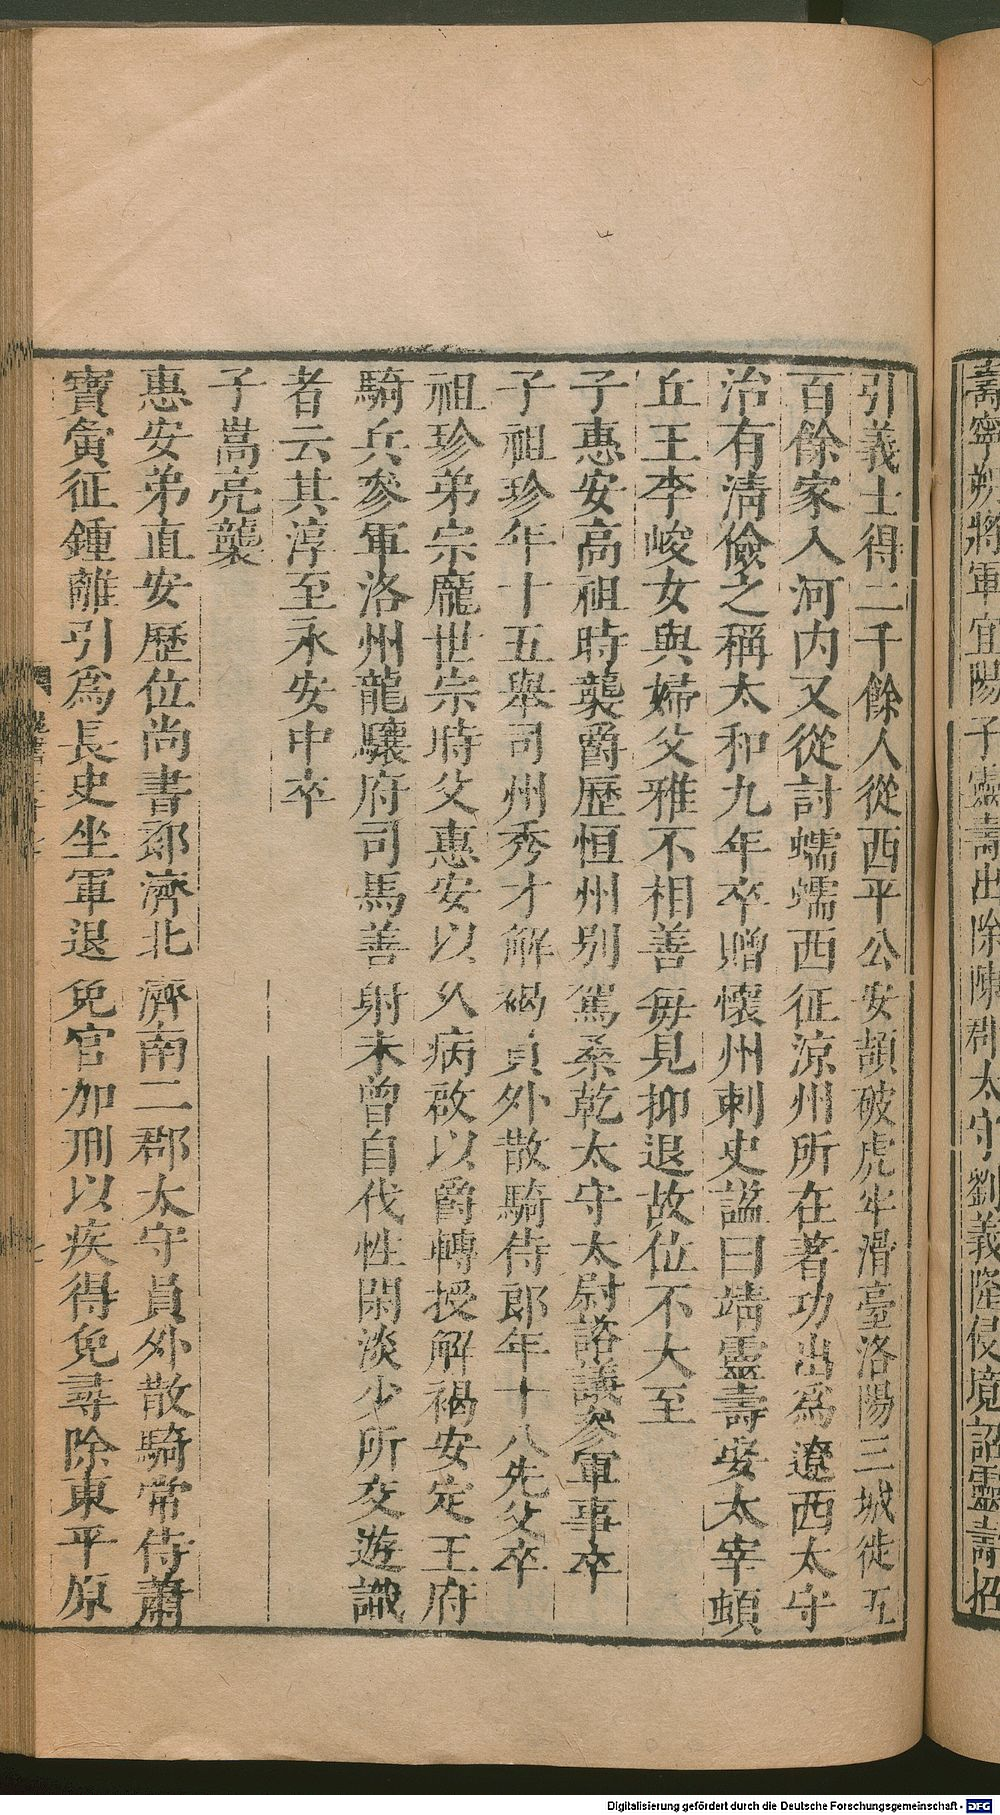 壽寧朔將軍宜陽子靈壽出除陳郡太守劉義隆侵境詔靈壽招
引義士得二千餘人從西平公安頡破虎牢滑臺洛陽三城徙五
百餘家入河內又從討蠕蠕西征涼州所在著功出為遼西太守
治有清儉之稱太和九年卒贈懷州刺史諡曰靖靈壽娶太宰頓
丘王李峻女與婦父雅不相善每見抑退故位不大至
子惠安高祖時襲爵歷恒州別駕桑乾太守太尉諮議參軍事卒
子祖珍年十五舉司州秀才解褐員外散騎侍郎年十八先父卒
祖珍弟宗龐世宗時父惠安以久病啟以爵轉授解褐安定王府
騎兵參軍洛州龍驤府司馬善射未曾自伐性閑淡少所交遊識
者云其淳至永安中卒
子嵩亮襲
惠安弟直安歷位尚書郎濟北濟南二郡太守員外散騎常侍蕭
寶夤征鍾離引為長史坐軍退免官加刑以疾得免尋除東平原
Digitalisierung gefördert durch die Deutsche Forschungsgemeinschaft - DFG